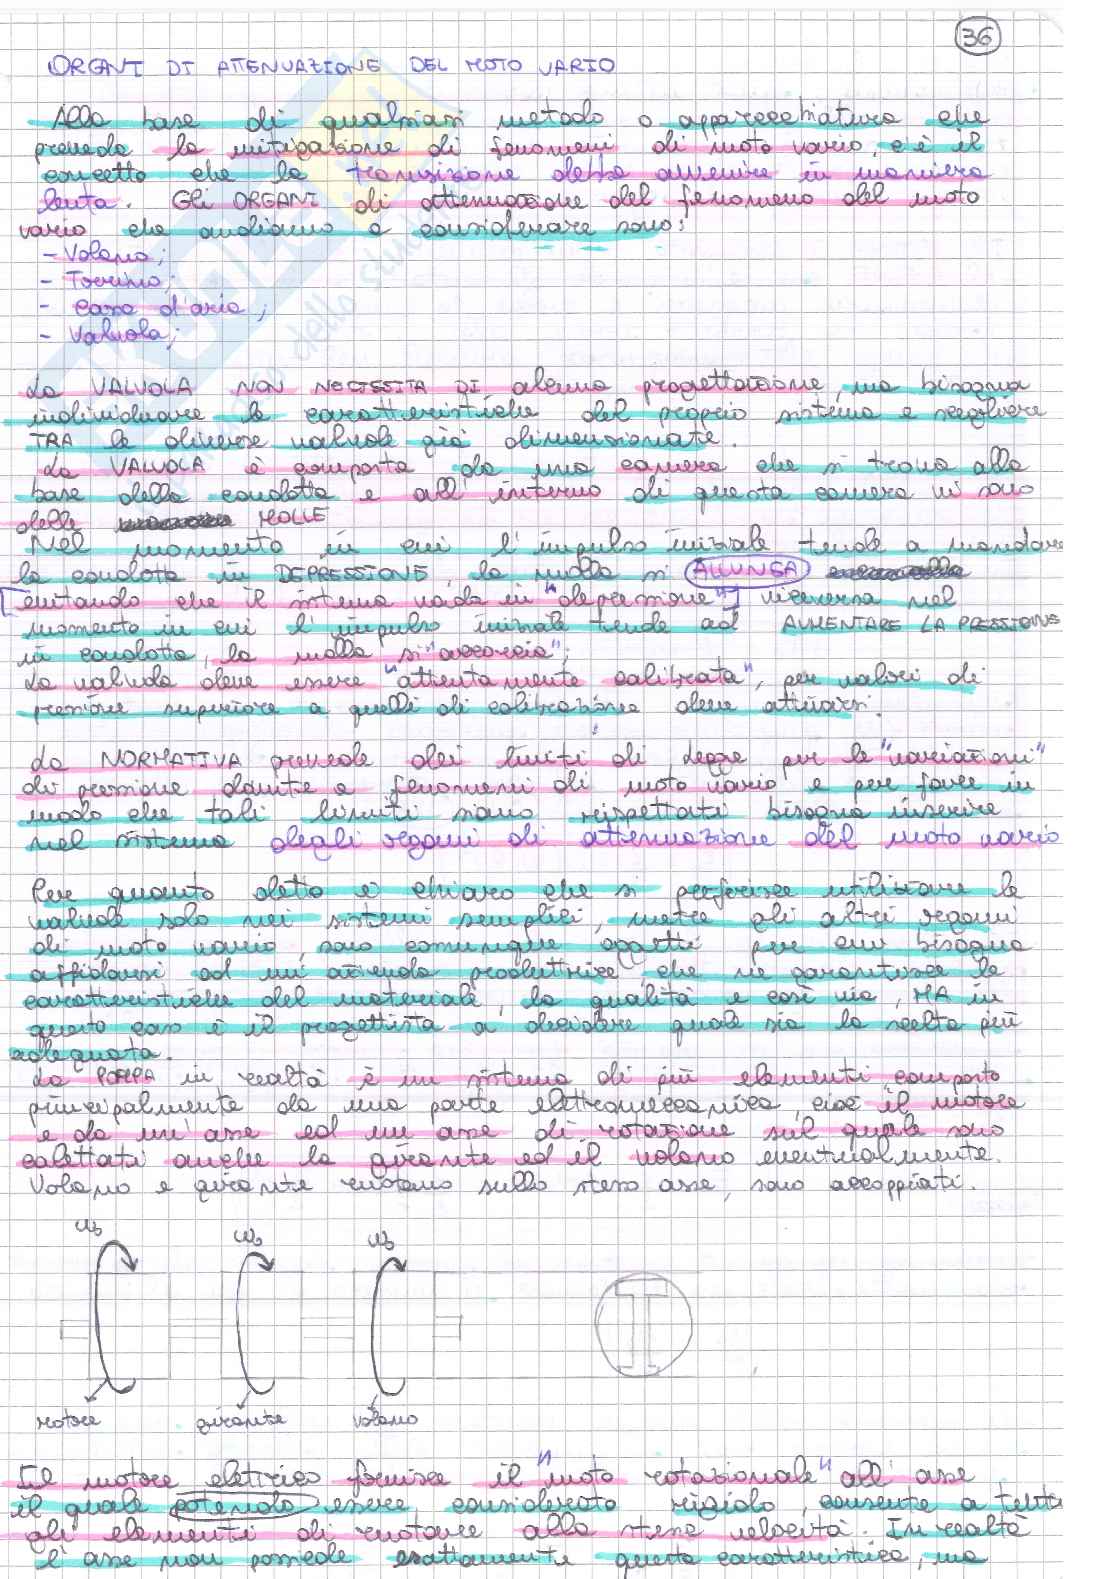 36
ORGANI DI ATTENUAZIONE DEL MOTO VARIO
Alla base di qualsiasi metodo o apparecchiatura che
preveda la mitigazione di fenomeni di moto vario, c'è il
concetto che la transizione debba avvenire in maniera
lenta. Gli ORGANI di attenuazione del fenomeno del moto
vario che andiamo a considerare sono:
- Volano;
- Torrino;
- Cassa d'aria;
- Valvola;
La VALVOLA NON NECESSITA DI alcuna progettazione, ma bisogna
individuare le caratteristiche del proprio sistema e scegliere
TRA le diverse valvole già dimensionate.
La VALVOLA è composta da una camera che si trova alla
base della condotta e all'interno di questa camera vi sono
delle MOLLE
Nel momento in cui l'impulso iniziale tende a mandare
la condotta in DEPRESSIONE, la molla si ALLUNGA
[evitando che il sistema vada in "depressione"] viceversa nel
momento in cui l'impulso iniziale tende ad AUMENTARE LA PRESSIONE
in condotta, la molla si "accorcia";
La valvola deve essere "attentamente calibrata", per valori di
pressione superiore a quelli di calibrazione deve attivarsi.
La NORMATIVA prevede dei limiti di legge per le "variazioni"
di pressione dovute a fenomeni di moto vario e per fare in
modo che tali limiti siano rispettati bisogna inserire
nel sistema degli organi di attenuazione del moto vario
Per quanto detto è chiaro che si preferisce utilizzare le
valvole solo nei sistemi semplici, mentre gli altri organi
di moto vario, sono comunque oggetti per cui bisogna
affidarsi ad un'azienda produttrice che ne garantisce le
caratteristiche del materiale, la qualità e così via, MA in
questo caso è il progettista a decidere quale sia la scelta più
adeguata.
La POMPA in realtà è un sistema di più elementi composto
principalmente da una parte elettromeccanica, cioè il motore
e da un'asse ed un asse di rotazione sul quale sono
calettati anche la girante ed il volano eventualmente.
Volano e girante ruotano sullo stesso asse, sono accoppiati.
ω₀ ω₀ ω₀
motore girante volano
Il motore elettrico fornisce il "moto rotazionale" all'asse
il quale potendo essere considerato rigido, consente a tutti
gli elementi di ruotare alla stessa velocità. In realtà
l'asse non possiede esattamente questa caratteristica, ma